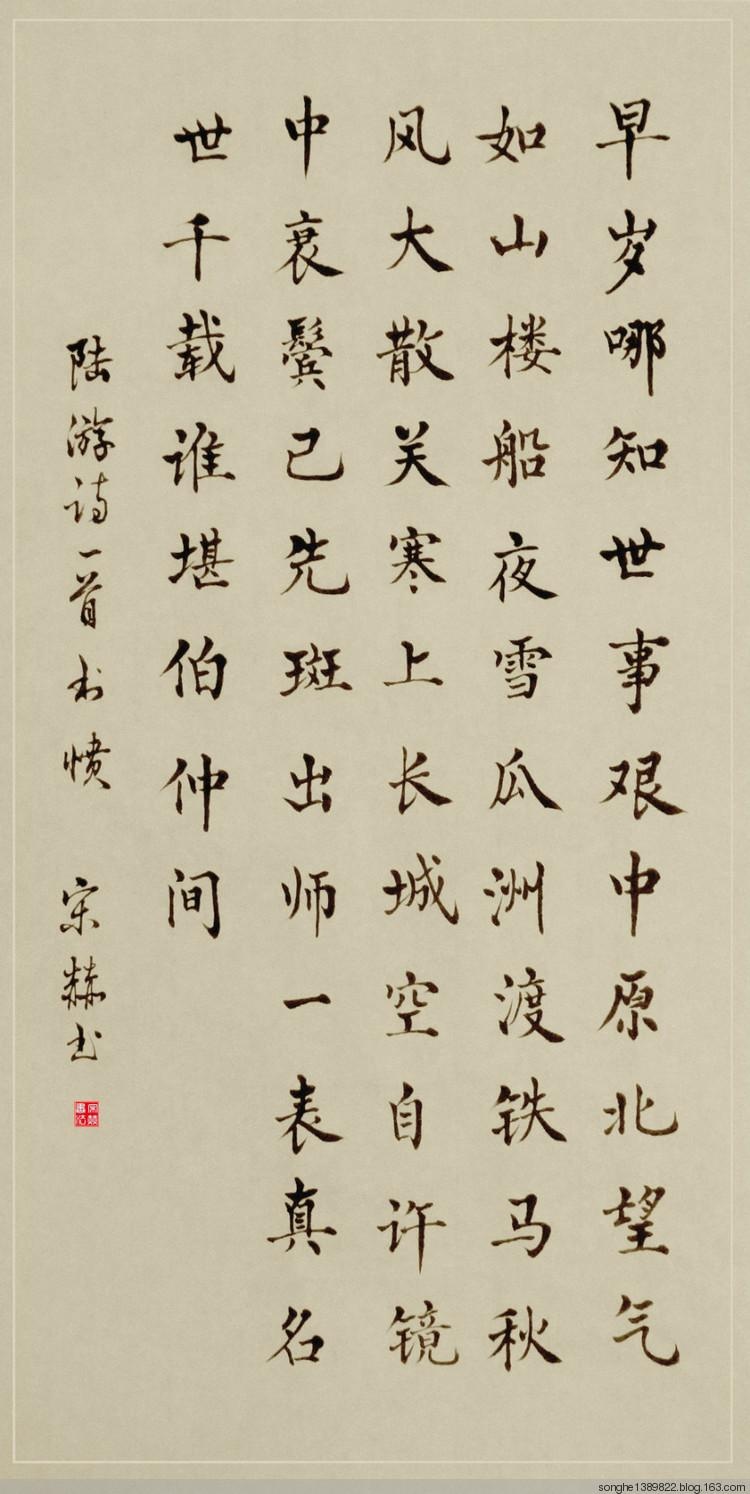 早岁哪知世事艰中原北望气
如山楼船夜雪瓜洲渡铁马秋
风大散关寒上长城空自许镜
中衰鬓已先斑出师一表真名
世千载谁堪伯仲间
陆游诗一首书愤 宋赫书
songhe1389822.blog.163.com